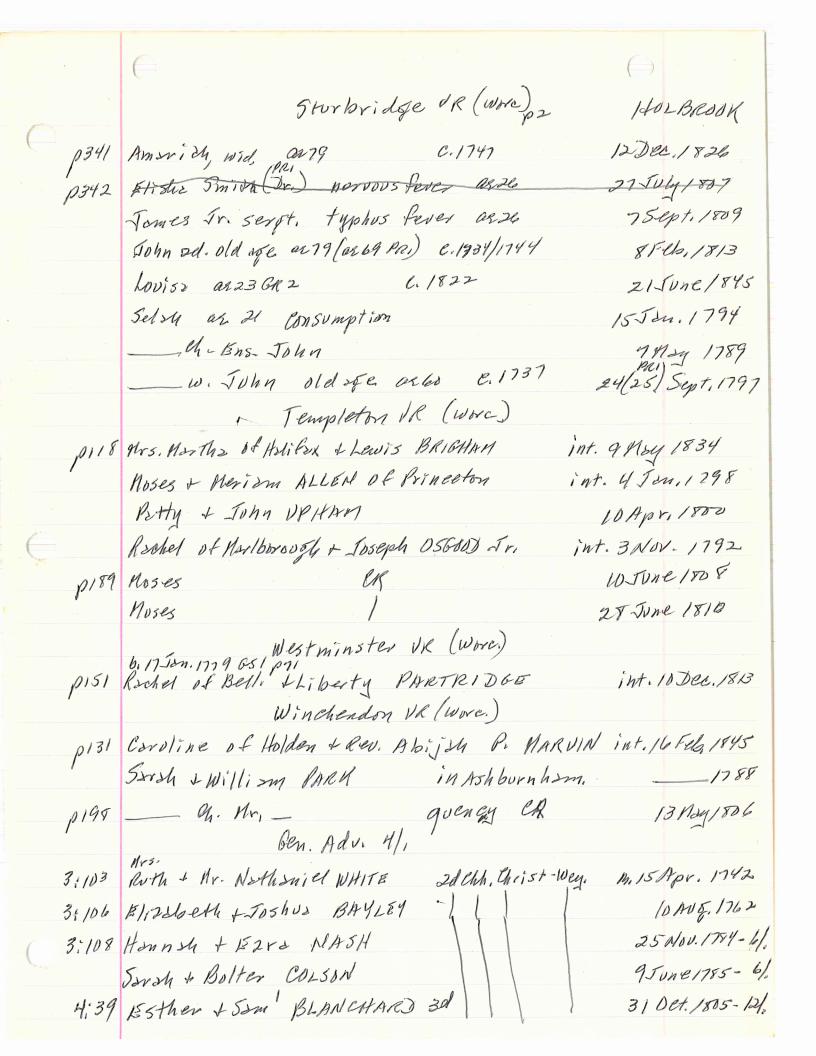 Sturbridge VR (Worc) p2 HOLBROOK
p341 Amariah, wid, ae79 c.1747 12 Dec. 1826
(PR1
p342 Elisha Smith (Jr.) nervous fever ae26 27 July 1807
James Jr. serpt. typhus fever ae26 7 Sept. 1809
John ad. old age ae79 (ae69 PR1) c.1734/1744 8 Feb. 1813
Louisa ae23 GR2 c. 1822 21 June 1845
Selah ae 21 consumption 15 Jan. 1794
—— ch. Ens. John 7 May 1789
—— w. John old age ae60 c.1737 24(25 PR1) Sept. 1797
Templeton VR (Worc.)
p118 Mrs. Martha of Halifax & Lewis BRIGHAM int. 9 May 1834
Moses & Meriam ALLEN of Princeton int. 4 Jan. 1798
Patty & John UPHAM 10 Apr. 1800
Rachel of Marlborough & Joseph OSGOOD Jr. int. 3 Nov. 1792
p189 Moses CR 10 June 1808
Moses 1 28 June 1810
Westminster VR (Worc.)
b. 17 Jan. 1779 GS1 p71
p151 Rachel of Bell. & Liberty PARTRIDGE int. 10 Dec. 1813
Winchendon VR (Worc.)
p131 Caroline of Holden & Rev. Abijah P. MARVIN int. 16 Feb. 1845
Sarah & William PARK in Ashburnham. —— 1788
p198 —— Ch. Mr. — quency CR 13 May 1806
Gen. Adv. 4/1
Mrs.
3:103 Ruth & Mr. Nathaniel WHITE 2d Chh. Christ-Wey. m. 15 Apr. 1742
3:106 Elizabeth & Joshua BAYLEY 10 Aug. 1762
3:108 Hannah & Ezra NASH 25 Nov. 1784-6/.
Sarah & Bolter COLSON 9 June 1785- 6/.
4:39 Esther & Sam'l BLANCHARD 3d 31 Oct. 1805-12/.